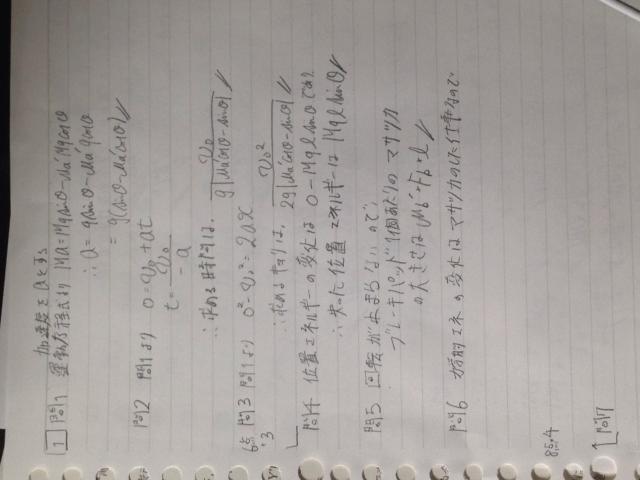 加速度をaとする
1 問1 運動方程式より Ma=Mgsinθ-μa'Mgcosθ
∴ a=gsinθ-μa'gcosθ
=g(sinθ-μa'cosθ)
問2 問1より 0=v₀+at
t=v₀/-a
∴ 求める時間は、v₀/g(μa'cosθ-sinθ)
6点 問3 問1より 0²-v₀²=2ax
∴ 求めるキョリは、v₀²/2g(μa'cosθ-sinθ)
問4 位置エネルギーの変化は 0-Mglsinθであり
∴ 失った位置エネルギーは Mglsinθ
問5 回転が止まらないので、
ブレーキパッド1個あたりのマサツ力
の大きさは μb'
問6 力学的エネの変化はマサツ力のした仕事なので
8点
問7